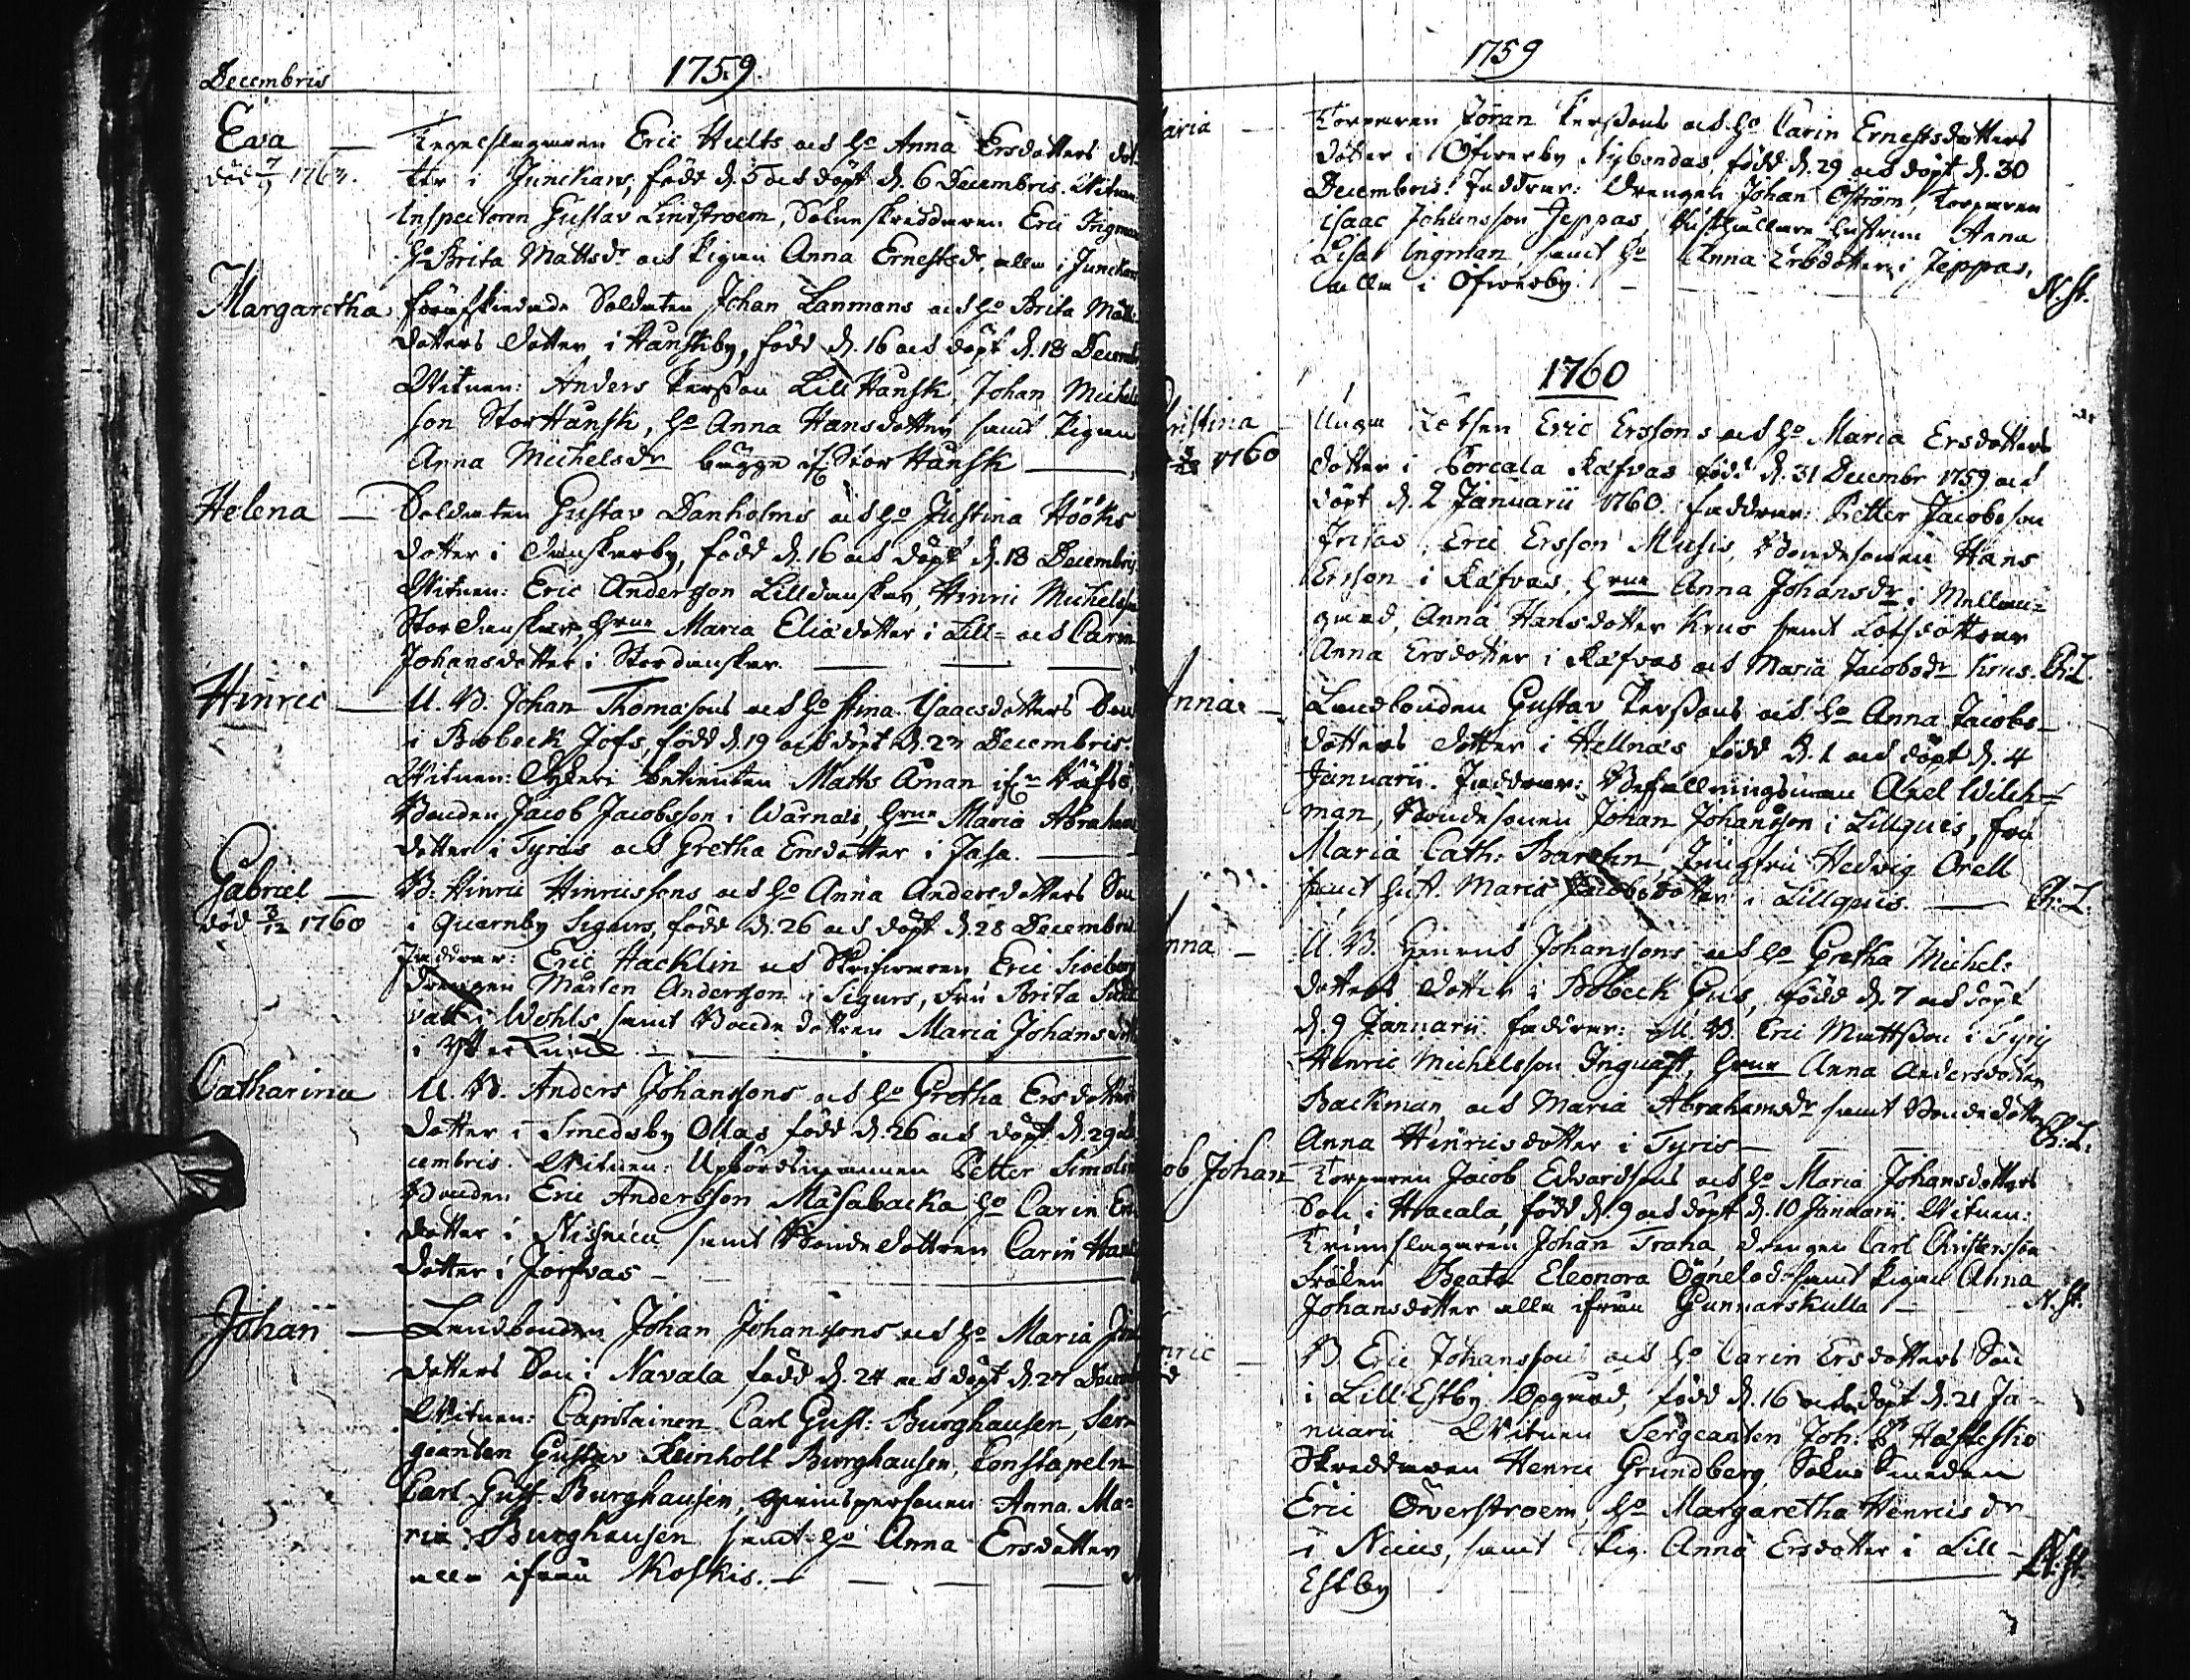 Decembris 1759.
Eva — Tegelslagaren Eric Hults och H:o Anna Ersdotters dot-
död 7/9 1763. ter i Junckars, född d. 5 och döpt d. 6 Decembris. Witnen:
Inspectoren Gustav Lindstroem, Sokneskreddaren Eric Ingman
H:o Brita Mattsdr och Pigan Anna Ernestsdr, alla i Junckars
Margaretha, förafskiedade Soldaten Johan Lanmans och H:o Brita Matts-
dotters dotter i Hanskby, född d. 16 och döpt d. 18 Decemb
Witnen: Anders Persson Lill Hansk, Johan Michels
son StorHansk, H:o Anna Hansdotter samt Pigan
Anna Michelsdr bägge af Stor Hansk —
Helena — Soldaten Gustav Danholms och H:o Justina Hööks
dotter i Danskarby, född d. 16 och döpt d. 18 Decembris
Witnen: Eric Andersson Lilldanskar, Hinric Michelsson
Stordanskar, Hrue Maria Eliædotter i Lill- och Carin
Johansdotter i Stordanskar. — — —
Hinric — U. B. Johan Thomasons och H:o Stina Isaacsdotters Son
i Bobeck Jofs, född d. 19 och döpt d. 27 Decembris.
Witnen: betienten Matts Åman if:n
Bonden Jacob Jacobsson i Wärnäs, Hrue Maria Abrahams
dotter i Tyris och Gretha Ersdotter i Jasa. —
Gabriel — B: Hinric Hinricssons och H:o Anna Andersdotters Son
död 3/12 1760 i Quarnby Sigurs, född d. 26 och döpt d. 28 Decembris
Faddrar: Eric Hacklin och Skrifvaren Eric Sioeberg
Drengen Mårten Andersson i Sigurs, Fru Brita
i Wohls, samt Bonde dottren Maria Johansdott
i —
Catharina U. B. Anders Johanssons och H:o Gretha Ersdotters
dotter i Smedsby Ollas född d. 26 och döpt d. 29 De
cembris. Witnen: Upbördsmannen Petter Simolin
Bonden Eric Andersson Masabacka H:o Carin Ers
dotter i samt Bondedottren Carin Hans
dotter i Jorfvas —
Johan — Landbonden Johan Johanssons och H:o Maria Joh
dotters Son i Navala född d. 24 och döpt d. 27 Decemb
Witnen: Capitainen Carl Gust: Burghausen, Ser-
geanten Gustav Reinholt Burghausen, Constapeln
Carl Gust. Burghausen, Anna Ma=
ria Burghausen samt H:o Anna Ersdotter
alla ifrån Koskis. — — —
1759
aria — Torparen Jöran Perssons och H:o Carin Ernestsdotters
dotter i Öfwerby Nybondas, född d. 29 och döpt d. 30
Decembris. Faddrar: Drengen Johan Öström, Torparen
Isaac Johansson Jeppas, Hustru Anna
Lisa Ingman, samt H:o Anna Ersdotter i Jeppas,
alla i Öfwerby. — — N. St.
1760
ristina Unga Lotsen Eric Erssons och H:o Maria Ersdotters
1760 dotter i Porcala Räfvas född d. 31 Decembr 1759 och
döpt d. 2 Januarii 1760. faddrar: Petter Jacobsson
Eric Ersson Musis, Bondesonen Hans
Ersson i Räfvas, Hrue Anna Johansdr i Mellan=
gård, Anna Hansdotter Krus samt Lotsdottrar
Anna Ersdotter i Räfvas och Maria Jacobsdr Krus. Ch: L.
nna — Landbonden Gustav Perssons och H:o Anna Jacobs-
dotters dotter i Hellnäs född d. 1 och döpt d. 4
Januarii. Faddrar: Befallningsman Axel Wilck=
man, Bondesonen Johan Johansson i Lillquis, fru
Maria Cath: , Jungfru Hedvig Orell
samt Hust. Maria Jacobsdotter i Lillquis. — Ch: L.
nna — U. B. Henrics Johanssons och H:o Gretha Michels
dotters dotter i Bobeck Gus, född d. 7 och döpt
d. 9 Januarii. faddrar: U. B. Eric Mattsson i Tyris
Henric Michelsson Ingvast, Hrue Anna Andersdotter
Backman, och Maria Abrahamsdr samt Bondedotter
Anna Hinricsdotter i Tyris — Ch: L.
ob Johan Torparen Jacob Edvardssons och H:o Maria Johansdotters
Son i Hacala, född d. 9 och döpt d. 10 Januarii. Witnen:
Trumslagaren Johan Traha, drengen Carl Christersson
Fröken Beata Eleonora Ögnelod samt Pigan Anna
Johansdotter alla ifrån Gunnarskulla — N. St.
nric — B. Eric Johanssons och H:o Carin Ersdotters Son
i Lill Estby Opgård, född d. 16 och döpt d. 21 Ja-
nuarii. Witnen Sergeanten Joh: Hästesko
Skreddaren Henric Grundberg, Sokne Smeden
Eric Överstroem, H:o Margaretha Henricsdr
i Nicus, samt Pig. Anna Ersdotter i Lill-
Estby — N. St.